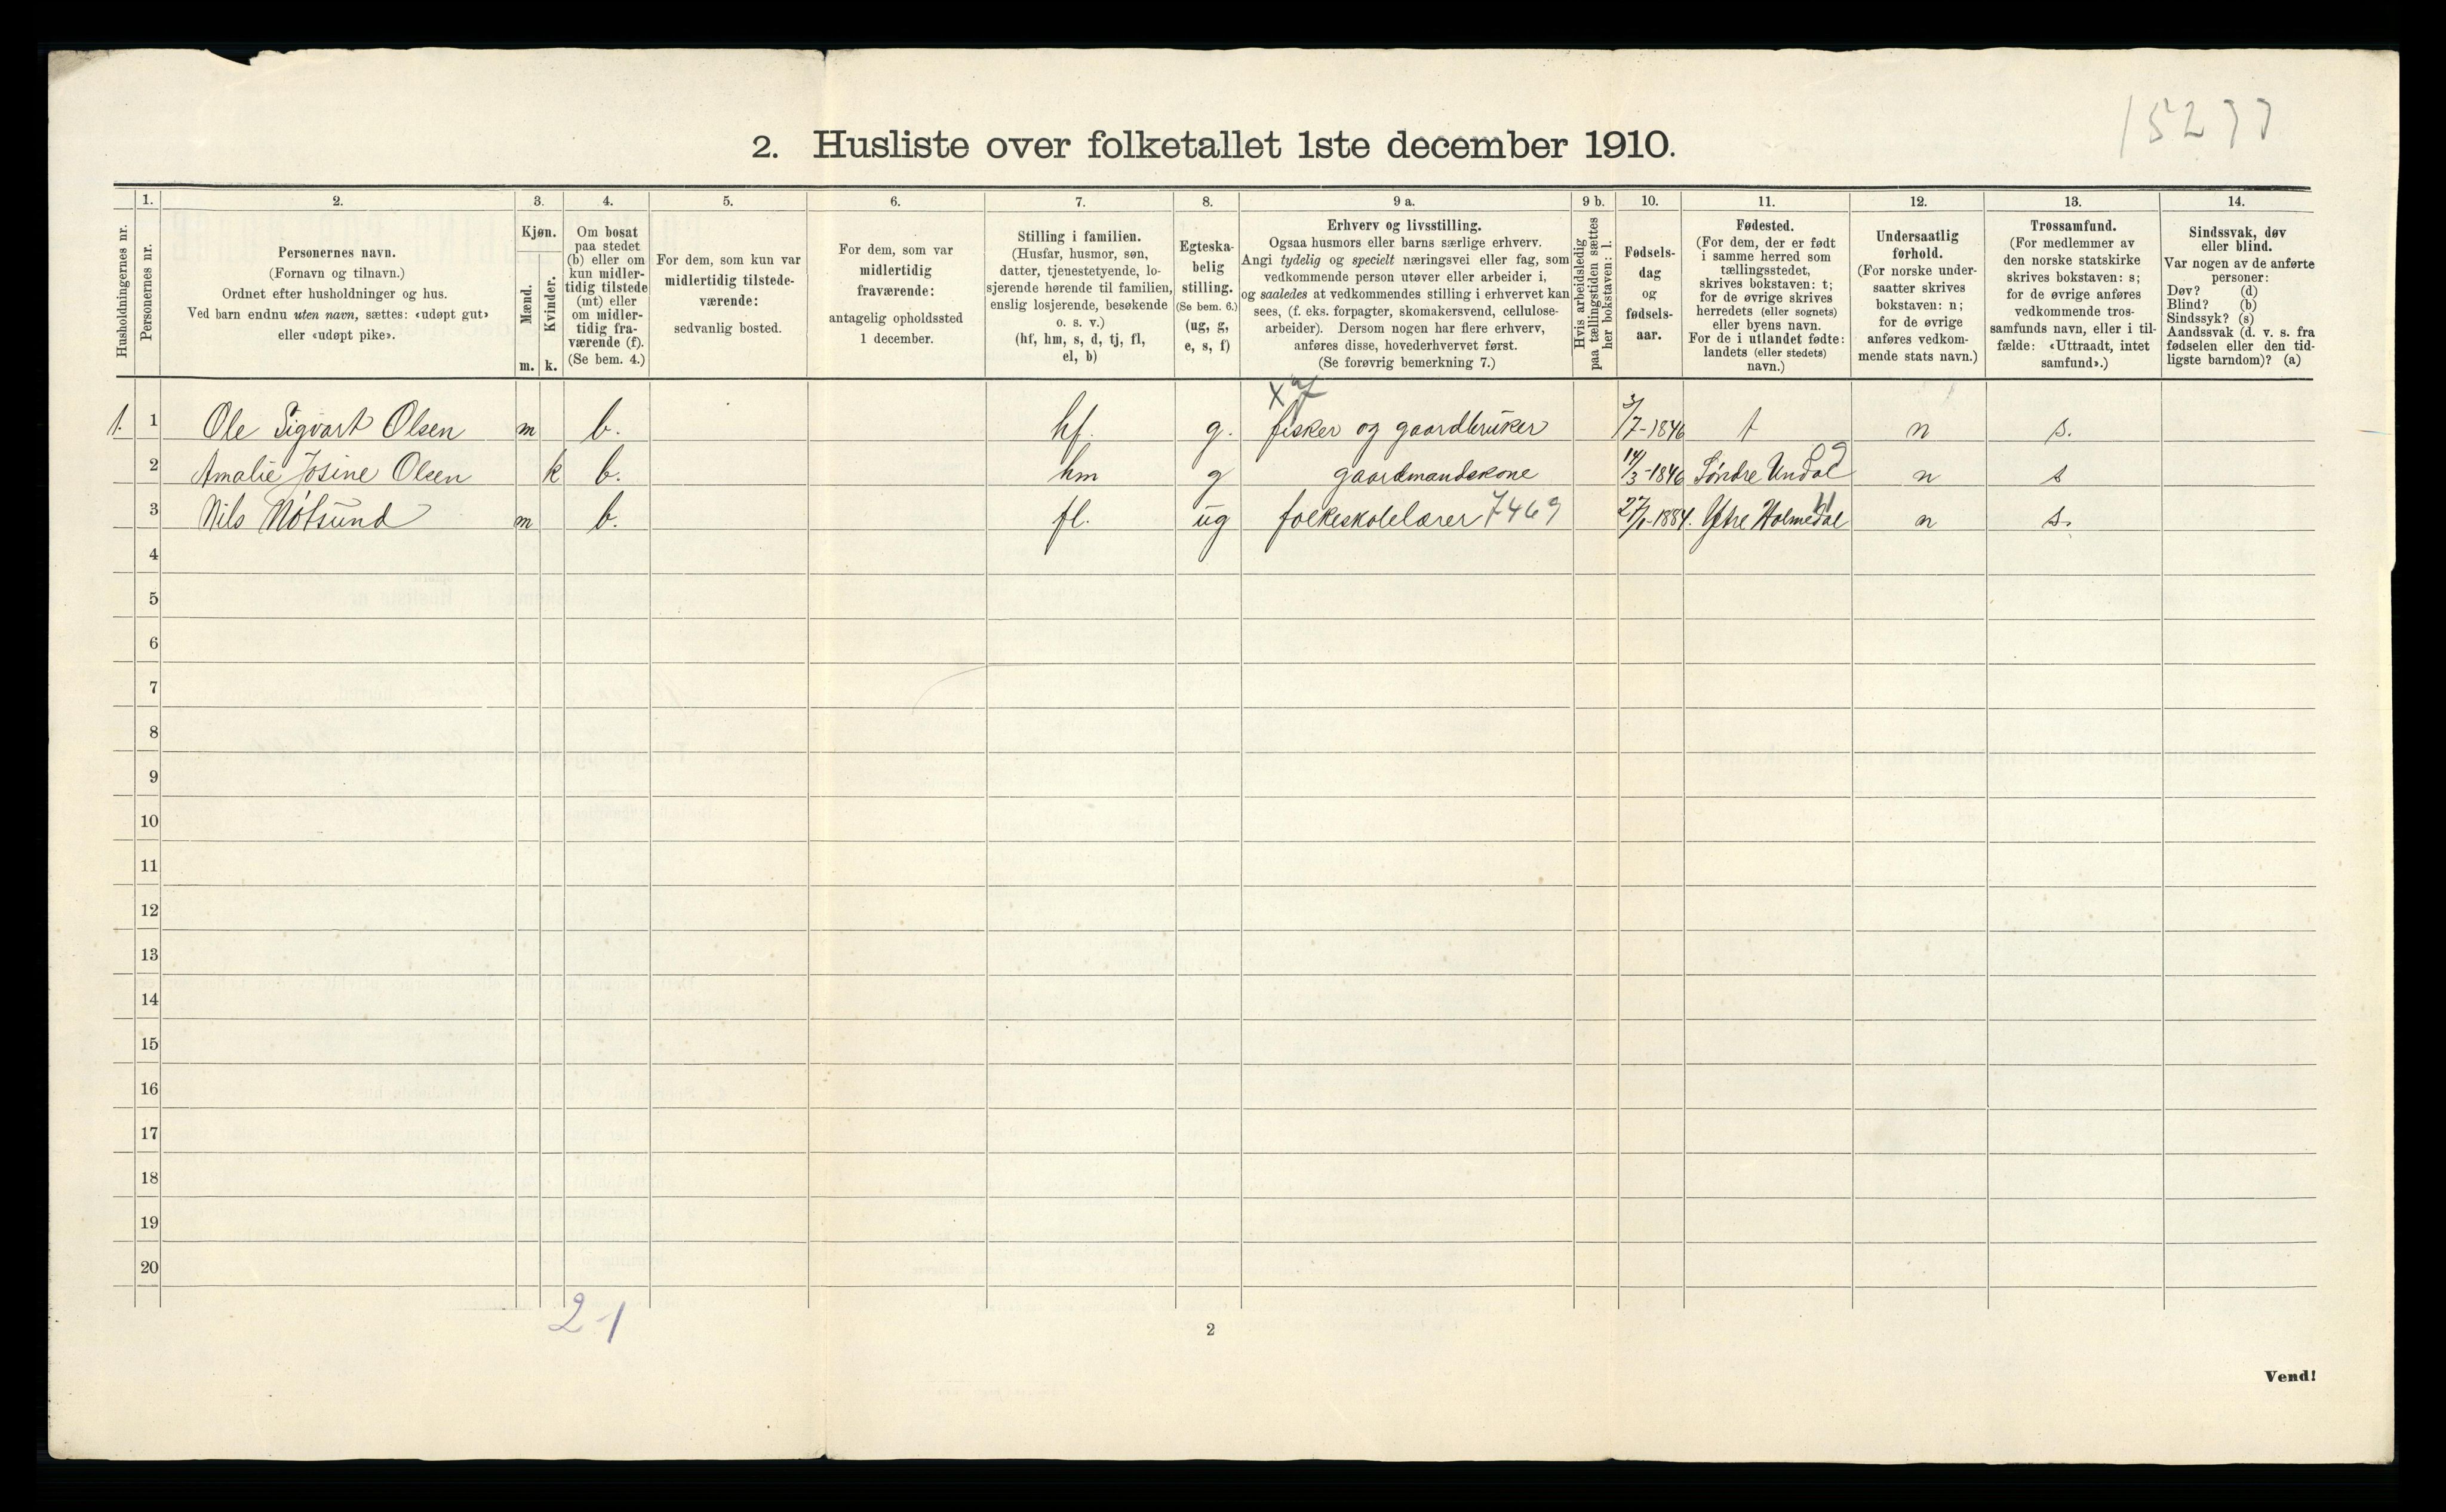 15277
2. Husliste over folketallet 1ste december 1910.
Husholdningernes nr.
1. Personernes nr.
2. Personernes navn.
(Fornavn og tilnavn.)
Ordnet efter husholdninger og hus.
Ved barn endnu uten navn, sættes: «udøpt gut»
eller «udøpt pike».
3. Kjøn.
Mænd. m.
Kvinder. k.
4. Om bosat
paa stedet
(b) eller om
kun midler-
tidig tilstede
(mt) eller
om midler-
tidig fra-
værende (f).
(Se bem. 4.)
5. For dem, som kun var
midlertidig tilstede-
værende:
sedvanlig bosted.
6. For dem, som var
midlertidig
fraværende:
antagelig opholdssted
1 december.
7. Stilling i familien.
(Husfar, husmor, søn,
datter, tjenestetyende, lo-
sjerende hørende til familien,
enslig losjerende, besøkende
o. s. v.)
(hf, hm, s, d, tj, fl,
el, b)
8. Egteska-
belig
stilling.
(Se bem. 6.)
(ug, g,
e, s, f)
9 a. Erhverv og livsstilling.
Ogsaa husmors eller barns særlige erhverv.
Angi tydelig og specielt næringsvei eller fag, som
vedkommende person utøver eller arbeider i,
og saaledes at vedkommendes stilling i erhvervet kan
sees, (f. eks. forpagter, skomakersvend, cellulose-
arbeider). Dersom nogen har flere erhverv,
anføres disse, hovederhvervet først.
(Se forøvrig bemerkning 7.)
9 b. Hvis arbeidsledig
paa tællingstiden sættes
her bokstaven: l.
10. Fødsels-
dag
og
fødsels-
aar.
11. Fødested.
(For dem, der er født
i samme herred som
tællingsstedet,
skrives bokstaven: t;
for de øvrige skrives
herredets (eller sognets)
eller byens navn.
For de i utlandet fødte:
landets (eller stedets)
navn.)
12. Undersaatlig
forhold.
(For norske under-
saatter skrives
bokstaven: n;
for de øvrige
anføres vedkom-
mende stats navn.)
13. Trossamfund.
(For medlemmer av
den norske statskirke
skrives bokstaven: s;
for de øvrige anføres
vedkommende tros-
samfunds navn, eller i til-
fælde: «Uttraadt, intet
samfund».)
14. Sindssvak, døv
eller blind.
Var nogen av de anførte
personer:
Døv? (d)
Blind? (b)
Sindssyk? (s)
Aandssvak (d. v. s. fra
fødselen eller den tid-
ligste barndom)? (a)
1. 1 Ole Sigvart Olsen m b. hf. g. fisker og gaardbruker 3/7-1846 t n s.
2 Amalie Josine Olsen k b. hm g gaardmandskone 14/3-1846 Søndre Undal 9 n s
3 Nils Nøtsund m b. fl. ug folkeskolelærer 7469 27/1-1884. Ytre Holmedal n s.
4
5
6
7
8
9
10
11
12
13
14
15
16
17
18
19
20
2-1
2
Vend!